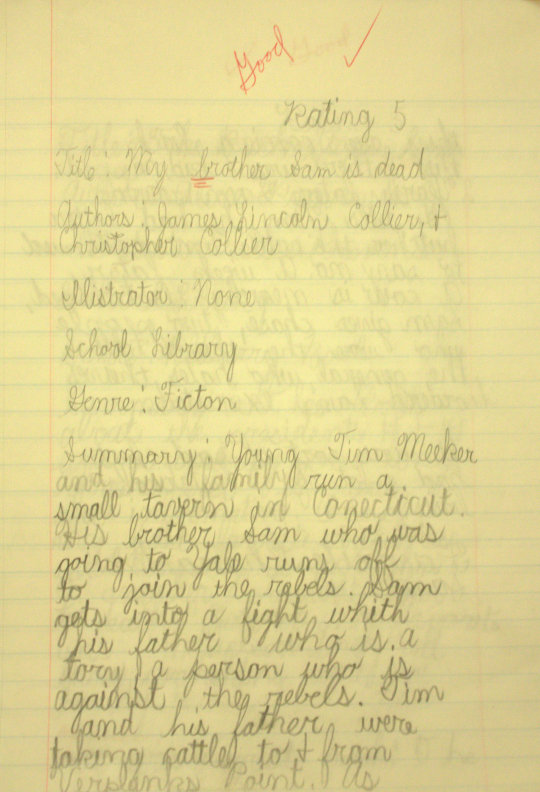 Good
Rating 5
Title: My brother Sam is dead
Authors: James Lincoln Collier, &
Christopher Collier
Ilistrator: None
School Library
Genre: Ficton
Summary: Young Tim Meeker
and his family run a
small tavern in Conecticut.
His brother Sam who was
going to Yale runs off
to join the rebels. Sam
gets into a fight whith
his father who is a
tory, a person who is
against the rebels. Tim
and his father were
taking cattle to & from
Verplanks Point. As